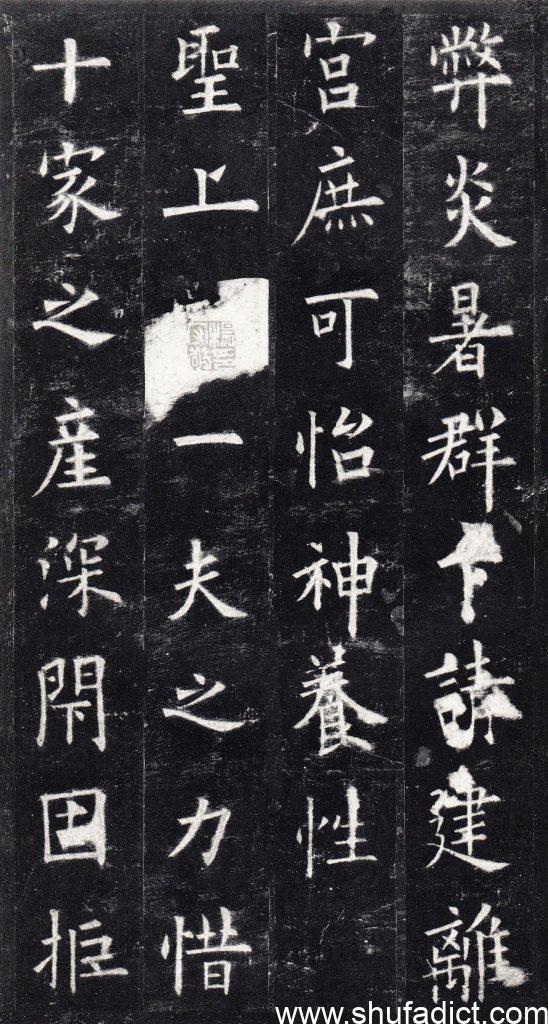 弊炎暑群下請建離
宮庶可怡神養性
聖上一夫之力惜
十家之産深閇固拒
www.shufadict.com